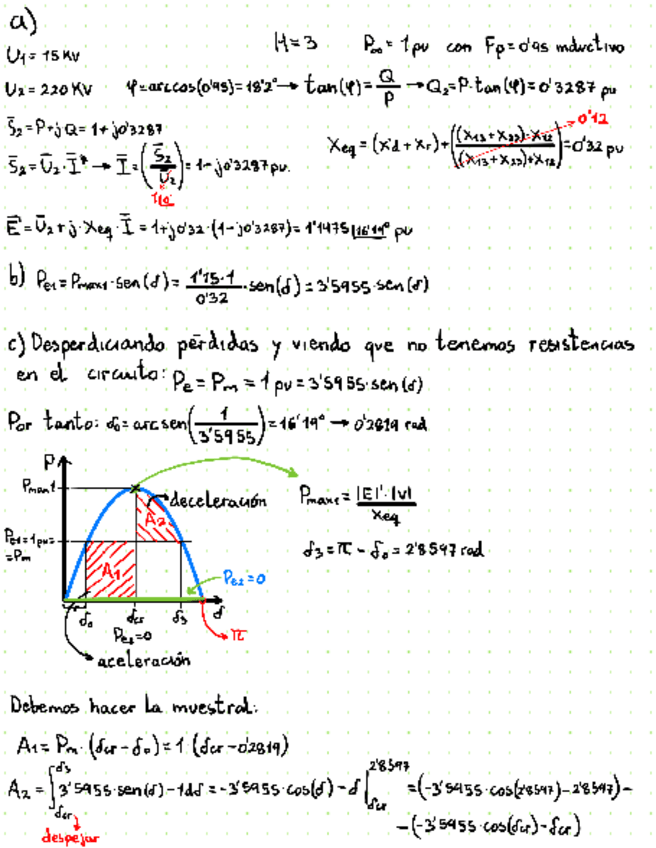 a)
U₁ = 15 KV
H = 3 P∞ = 1 pu con Fp = 0'95 inductivo
U₂ = 220 KV φ = arccos(0'95) = 18'2° → tan(φ) = Q/P → Q₂ = P·tan(φ) = 0'3287 pu
S̄₂ = P + jQ = 1 + j0'3287
S̄₂ = Ū₂·Ī* → Ī = (S̄₂/Ū₂)* = 1 - j0'3287 pu.
1|0°
Xeq = (X'd + Xr) + (((X₁₃ + X₂₃)·X₁₂)/((X₁₃ + X₂₃) + X₁₂)) = 0'32 pu
0'12
Ē' = Ū₂ + j·Xeq·Ī = 1 + j0'32·(1 - j0'3287) = 1'1475 |16'19° pu
b) Pe₁ = Pmax₁·sen(δ) = (1'15·1)/0'32 ·sen(δ) = 3'5955·sen(δ)
c) Desperdiciando pérdidas y viendo que no tenemos resistencias
en el circuito: Pe = Pm = 1 pu = 3'5955·sen(δ)
Por tanto: δ₀ = arcsen(1/3'5955) = 16'19° → 0'2819 rad
P
Pmax1
deceleración
A₂
Pe₁ = 1 pu =
= Pm
A₁
Pe₂ = 0
δ₀ δcr δ₃ δ
Pe₂ = 0
π
aceleración
Pmax₁ = |E|'·|V|/Xeq
δ₃ = π - δ₀ = 2'8597 rad
Debemos hacer la muestral:
A₁ = Pm·(δcr - δ₀) = 1·(δcr - 0'2819)
A₂ = ∫δcr^δ₃ 3'5955·sen(δ) - 1dδ = -3'5955·cos(δ) - δ |δcr^2'8597 = (-3'5955·cos(2'8597) - 2'8597) -
- (-3'5955·cos(δcr) - δcr)
despejar